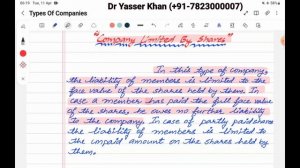 00:19 Tue, 11 Apr
Dr Yasser Khan (+91-7823000007)
Types Of Companies
"Company Limited By Shares"
In this type of company,
the liability of members is limited to the
face value of the shares held by them. In
case a member has paid the full face value
of the shares, he owes no further liability
to the company. In case of partly paid shares
the liability of members is limited to the
unpaid amount on the shares held by
them.